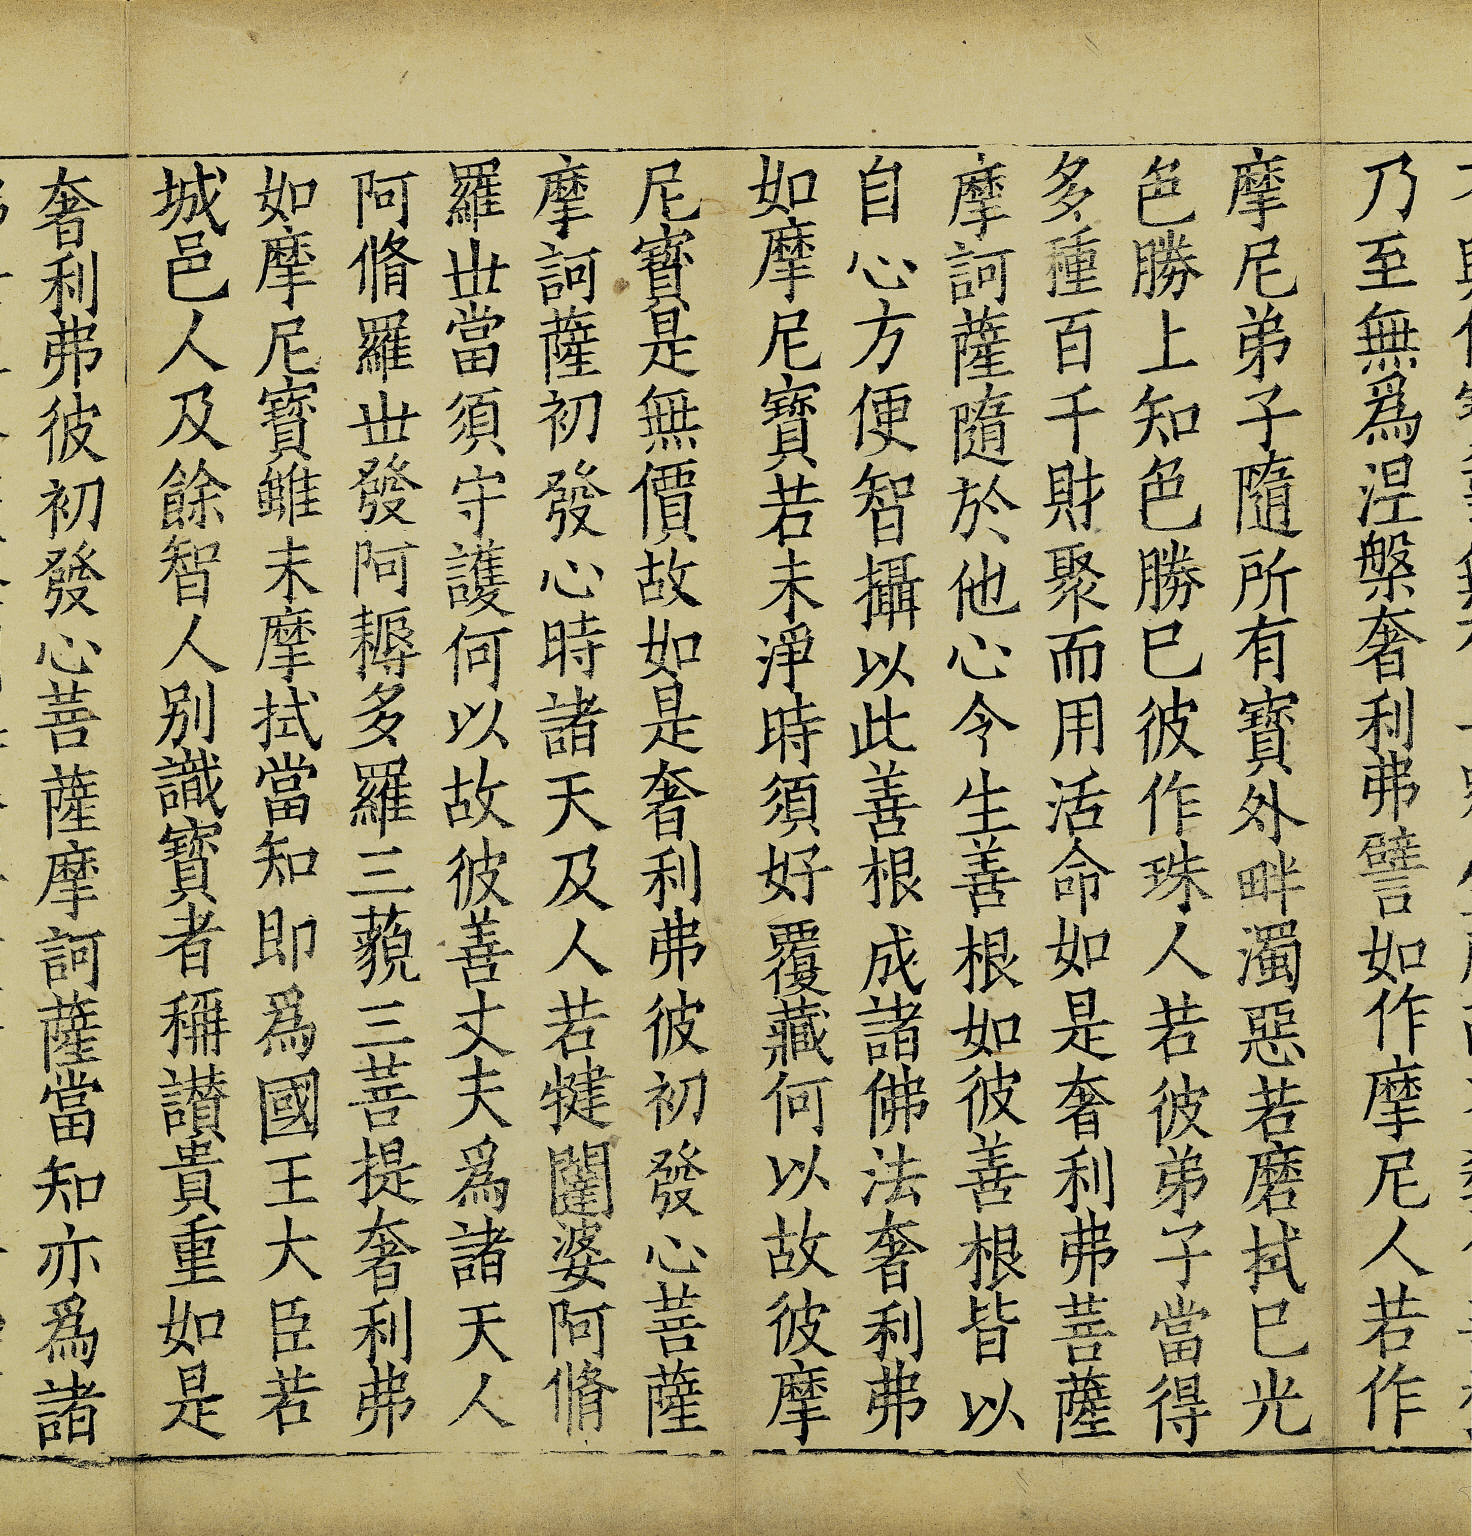 乃至無爲涅槃奢利弗譬如作摩尼人若作
摩尼弟子隨所有寶外畔濁惡若磨拭已光
色勝上知色勝已彼作珠人若彼弟子當得
多種百千財聚而用活命如是奢利弗菩薩
摩訶薩隨於他心令生善根如彼善根皆以
自心方便智攝以此善根成諸佛法奢利弗
如摩尼寶若未淨時須好覆藏何以故彼摩
尼寶是無價故如是奢利弗彼初發心菩薩
摩訶薩初發心時諸天及人若犍闥婆阿脩
羅丗當須守護何以故彼善丈夫爲諸天人
阿脩羅丗發阿耨多羅三藐三菩提奢利弗
如摩尼寶雖未摩拭當知即爲國王大臣若
城邑人及餘智人別識寶者稱讃貴重如是
奢利弗彼初發心菩薩摩訶薩當知亦爲諸